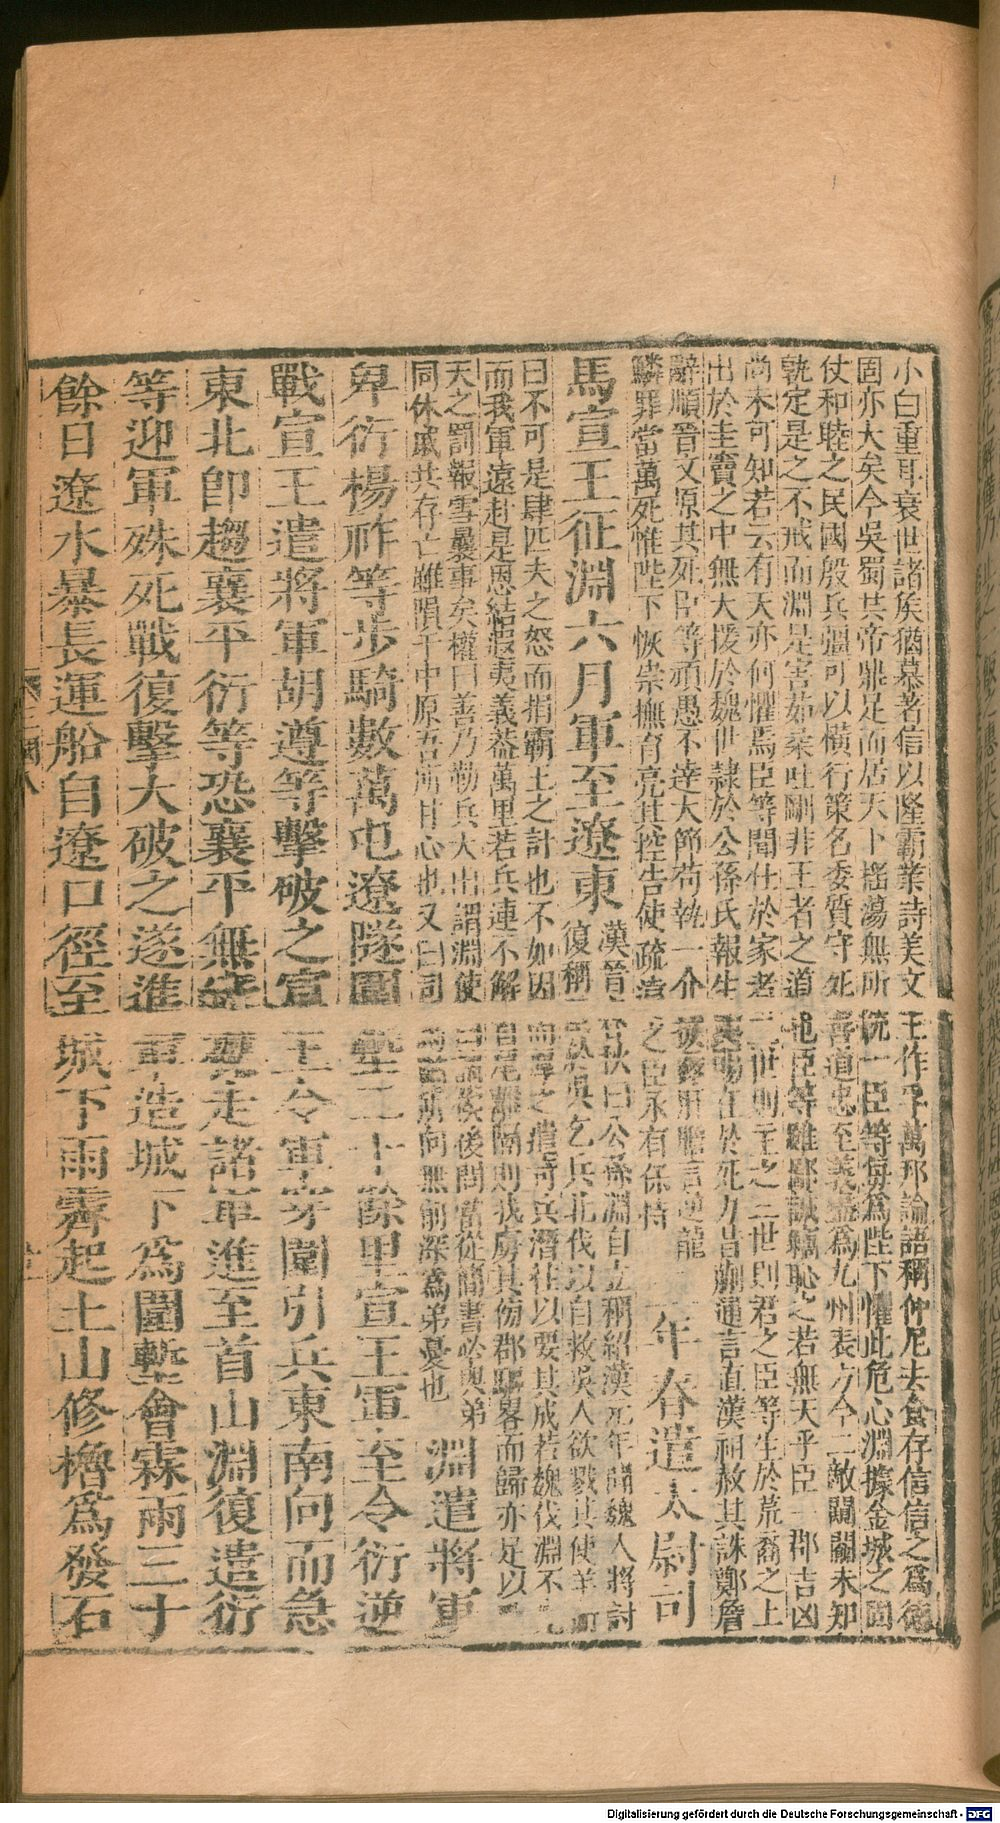 小白重耳衰世諸侯猶慕著信以隆霸業詩美文王作孚萬邦論語稱仲尼去食存信信之爲德
固亦大矣今吳蜀共帝鼎足而居天下搖蕩無所統一臣等每爲陛下懼此危心淵據金城之固
仗和睦之民國殷兵彊可以橫行策名委質守死善道忠至義盡爲九州表方今二敵闚未知
孰定是之不戒而淵是害茹柔吐剛非王者之道也臣等雖鄙誠竊恥之若無天乎臣一郡吉凶
尚未可知若云有天亦何懼焉臣等聞仕於家者二世則主之三世則君之臣等生於荒裔之土
出於圭竇之中無大援於魏世隸於公孫氏報生與賜在於死力昔蒯通言直漢祖赦其誅鄭詹
辭順晉文原其死臣等頑愚不達大節苟執一介披露肝膽言逆龍
鱗罪當萬死惟陛下恢崇撫育亮其控告使疏遠之臣永有保持
二年春遣太尉司
馬宣王征淵六月軍至遼東
漢晉春秋曰公孫淵自立稱紹漢元年聞魏人將討
復稱臣於吳乞兵北伐以自救吳人欲戮其使羊衜
曰不可是肆匹夫之怒而捐霸王之計也不如因而厚之遣奇兵潛往以要其成若魏伐淵不克
而我軍遠赴是恩結遐夷義蓋萬里若兵連不解首尾離隔則我虜其傍郡驅畧而歸亦足以
天之罰報雪曩事矣權曰善乃勒兵大出謂淵使曰請俟後問當從簡書必與弟
同休戚共存亡雖隕于中原吾所甘心也又曰司馬公所向無前深爲弟憂也
淵遣將軍
卑衍楊祚等步騎數萬屯遼隧圍塹二十餘里宣王軍至令衍逆
戰宣王遣將軍胡遵等擊破之宣王令軍穿圍引兵東南向而急
東北卽趨襄平衍等恐襄平無守夜走諸軍進至首山淵復遣衍
等迎軍殊死戰復擊大破之遂進軍造城下爲圍塹會霖雨三十
餘日遼水暴長運船自遼口徑至城下雨霽起土山修櫓爲發石
Digitalisierung gefördert durch die Deutsche Forschungsgemeinschaft - DFG